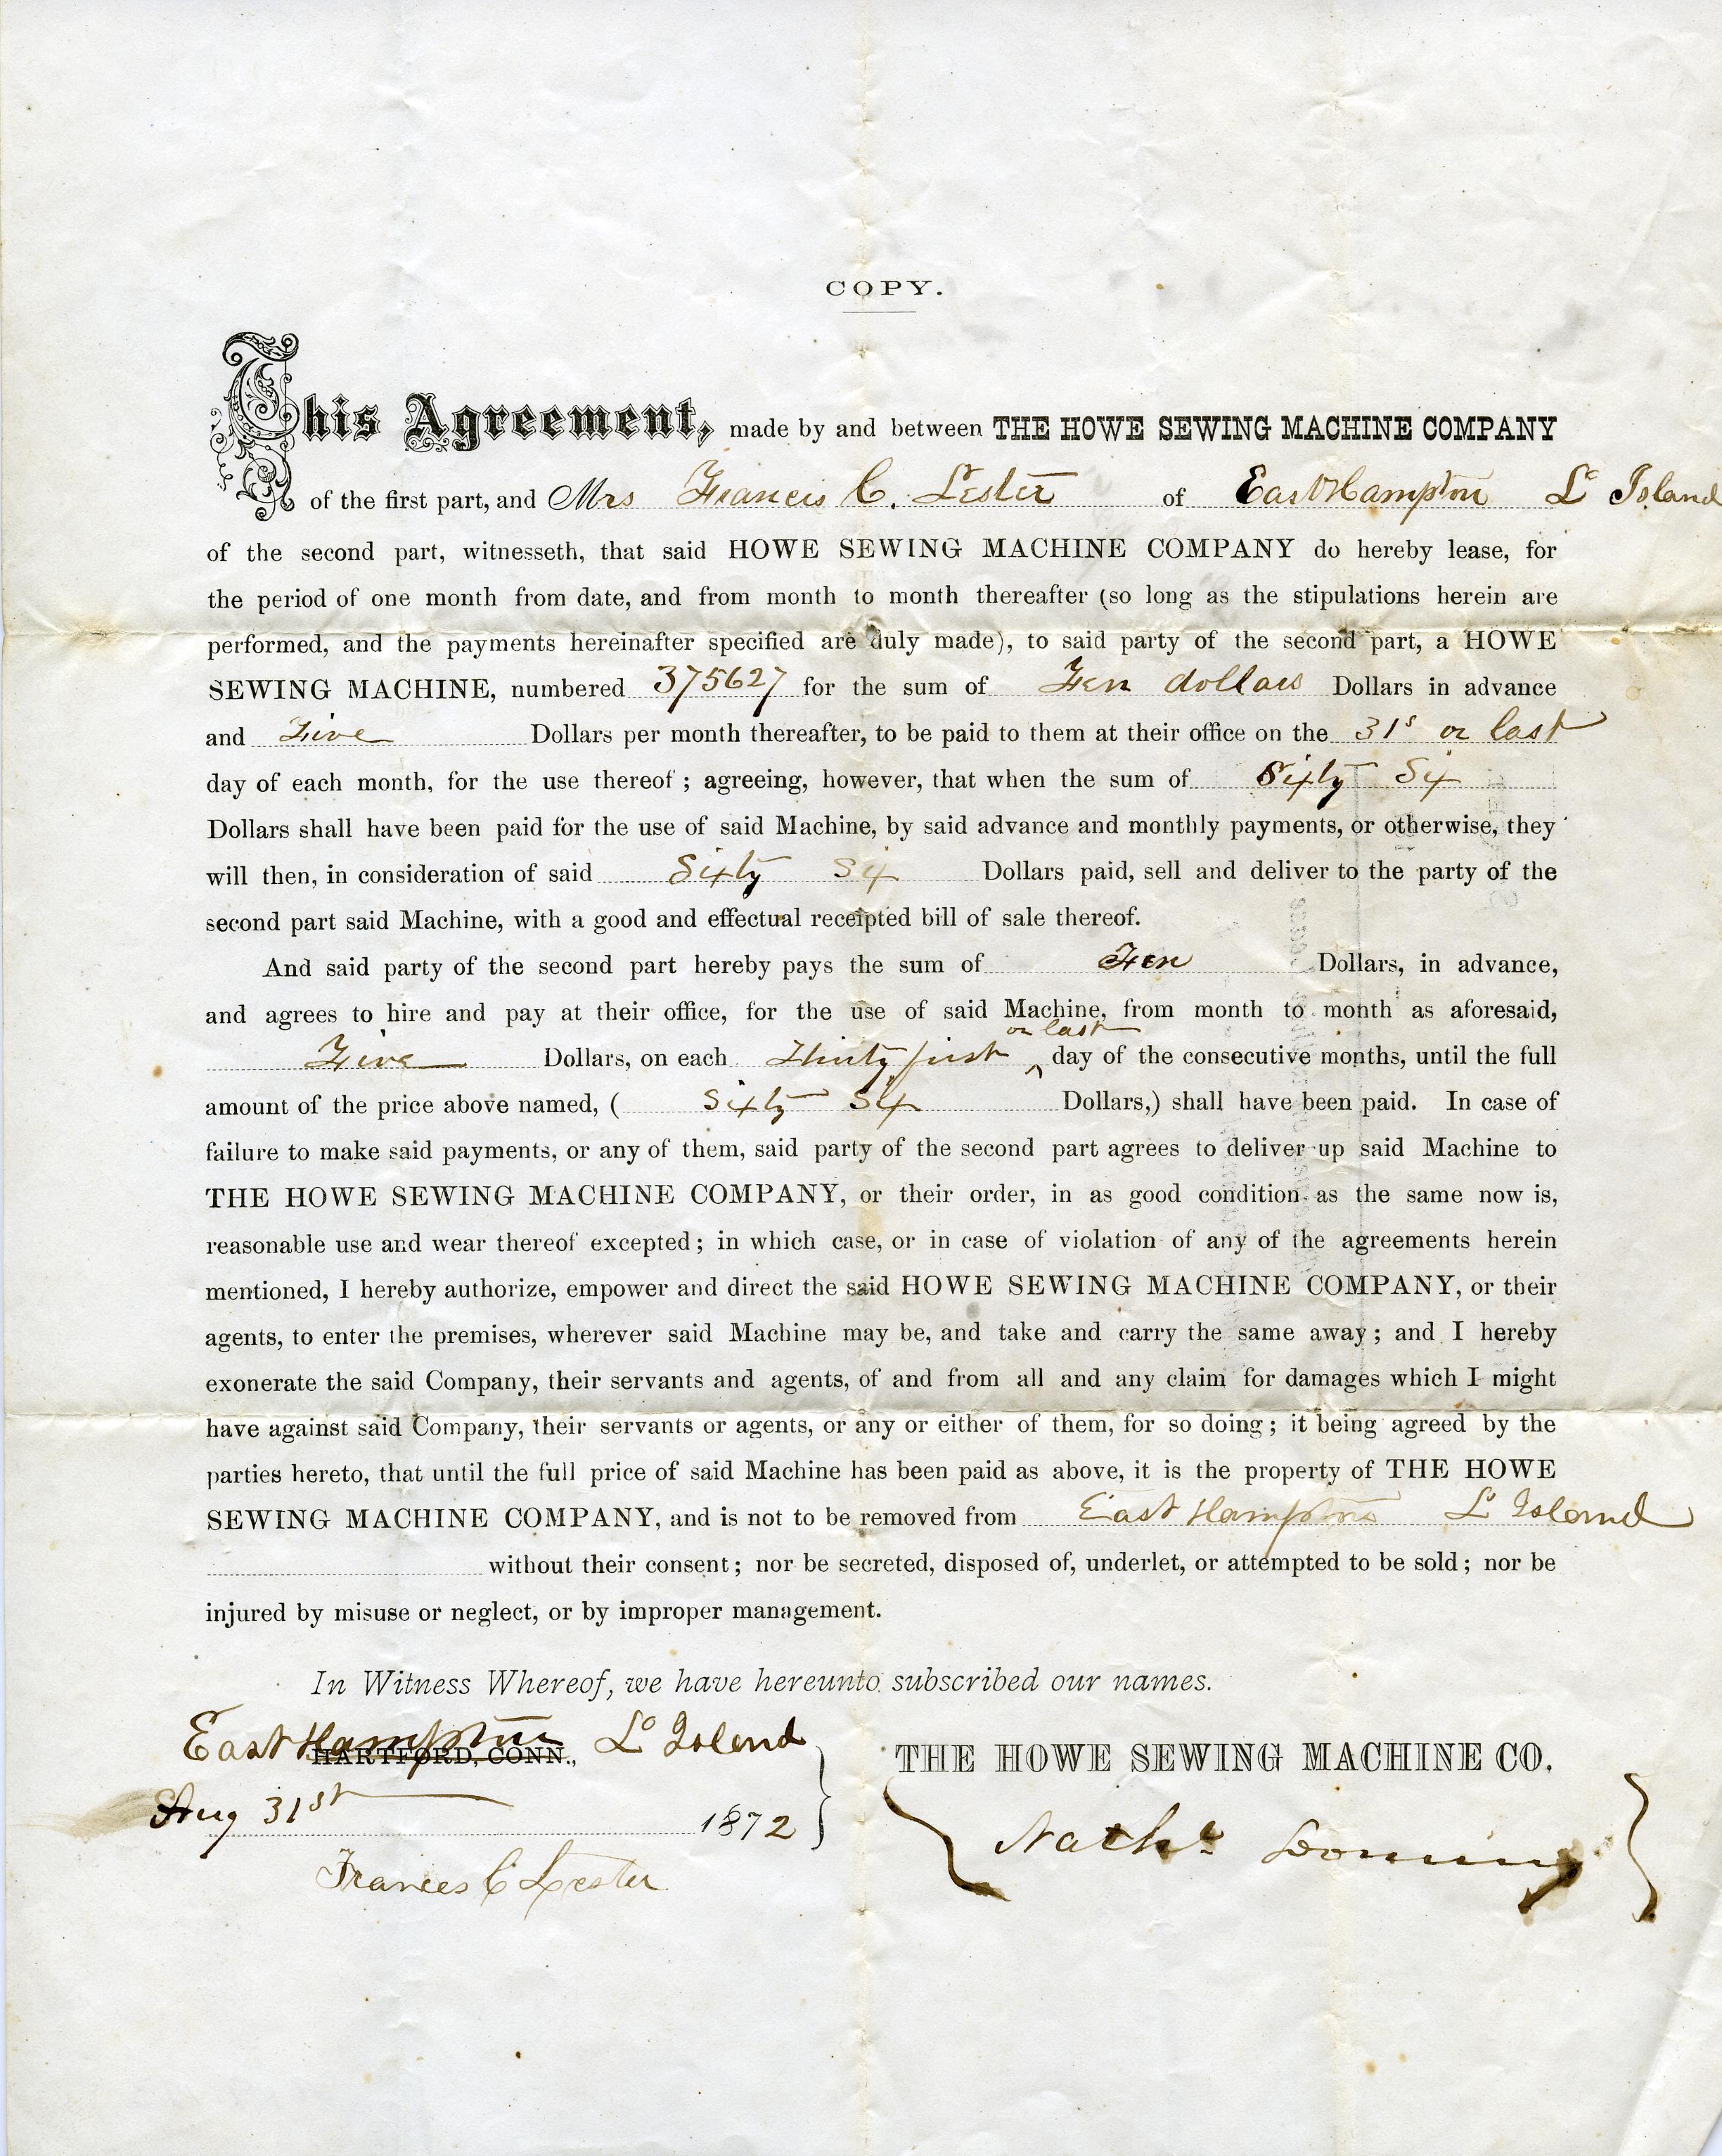 COPY.
This Agreement, made by and between THE HOWE SEWING MACHINE COMPANY
of the first part, and Mrs Francis C. Lester of East Hampton Lo Island
of the second part, witnesseth, that said HOWE SEWING MACHINE COMPANY do hereby lease, for
the period of one month from date, and from month to month thereafter (so long as the stipulations herein are
performed, and the payments hereinafter specified are duly made), to said party of the second part, a HOWE
SEWING MACHINE, numbered 375627 for the sum of Ten dollars Dollars in advance
and Five Dollars per month thereafter, to be paid to them at their office on the 31s or last
day of each month, for the use thereof; agreeing, however, that when the sum of Sixty Six
Dollars shall have been paid for the use of said Machine, by said advance and monthly payments, or otherwise, they
will then, in consideration of said Sixty Six Dollars paid, sell and deliver to the party of the
second part said Machine, with a good and effectual receipted bill of sale thereof.
And said party of the second part hereby pays the sum of Ten Dollars, in advance,
and agrees to hire and pay at their office, for the use of said Machine, from month to month as aforesaid,
or last
Five Dollars, on each Thirty first ‸ day of the consecutive months, until the full
amount of the price above named, ( Sixty Six Dollars,) shall have been paid. In case of
failure to make said payments, or any of them, said party of the second part agrees to deliver up said Machine to
THE HOWE SEWING MACHINE COMPANY, or their order, in as good condition as the same now is,
reasonable use and wear thereof excepted; in which case, or in case of violation of any of the agreements herein
mentioned, I hereby authorize, empower and direct the said HOWE SEWING MACHINE COMPANY, or their
agents, to enter the premises, wherever said Machine may be, and take and carry the same away; and I hereby
exonerate the said Company, their servants and agents, of and from all and any claim for damages which I might
have against said Company, their servants or agents, or any or either of them, for so doing; it being agreed by the
parties hereto, that until the full price of said Machine has been paid as above, it is the property of THE HOWE
SEWING MACHINE COMPANY, and is not to be removed from East Hampton Lo Island
without their consent; nor be secreted, disposed of, underlet, or attempted to be sold; nor be
injured by misuse or neglect, or by improper management.
In Witness Whereof, we have hereunto subscribed our names.
East Hampton Lo Island
HARTFORD, CONN.,
Aug 31st 1872
Frances C Lester
THE HOWE SEWING MACHINE CO.
Nathl Dominy